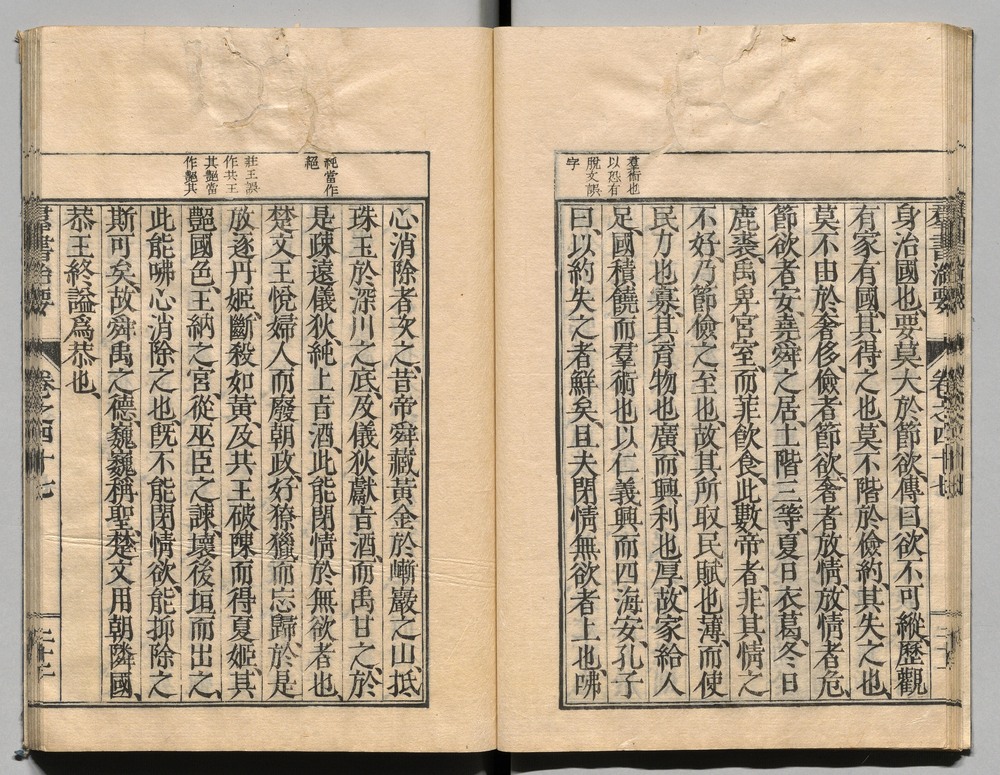 群書治要
卷之四十七
羣術也
以恐有
脫文誤
字
身治國也、要莫大於節欲、傳曰、欲不可縱、歷觀
有家有國、其得之也、莫不階於儉約、其失之也、
莫不由於奢侈、儉者節欲、奢者放情、放情者危、
節欲者安、堯舜之居、土階三等、夏日衣葛、冬日
鹿裘、禹卑宮室、而菲飲食、此數帝者、非其情之
不好、乃節儉之至也、故其所取民賦也薄、而使
民力也寡、其育物也廣、而興利也厚、故家給人
足、國積饒而羣術也以仁義興而四海安、孔子
曰、以約失之者鮮矣、且夫閉情無欲者上也、咈
純當作
絕
莊王誤
作共王
其艷當
作艷其
心消除者次之、昔帝舜藏黃金於嶄巖之山、抵
珠玉於深川之底、及儀狄獻旨酒、而禹甘之、於
是疎遠儀狄、純上旨酒、此能閉情於無欲者也、
楚文王悅婦人而廢朝政、好獠獵而忘歸、於是
放逐丹姬、斷殺如黃、及共王破陳而得夏姬、其
艷國色、王納之宮、從巫臣之諫、壞後垣而出之、
此能咈心消除之也、既不能閉情欲、能抑除之
斯可矣、故舜禹之德、巍巍稱聖、楚文用朝隣國、
恭王終謚爲恭也、
群書治要
卷之四十七